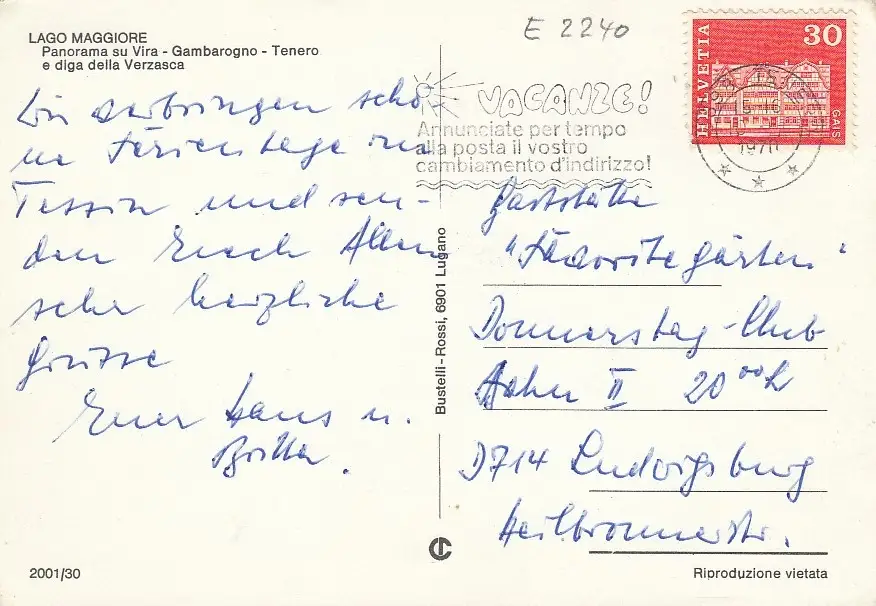 LAGO MAGGIORE
Panorama su Vira - Gambarogno - Tenero
e diga della Verzasca
E 2240
HELVETIA
30
GAIS
VACANZE!
Annunciate per tempo
alla posta il vostro
cambiamento d'indirizzo!
1970
Wir verbringen schö-
ne Ferientage im
Tessin und sen-
den Euch Allen
sehr herzliche
Grüsse
Euer Hans u.
Britta.
Bustelli-Rossi, 6901 Lugano
Gaststätte
"Favoritegärten"
Donnerstag-Club
Bahn II 20 ooh
D714 Ludwigsburg
Heilbronnerstr.
2001/30
Riproduzione vietata